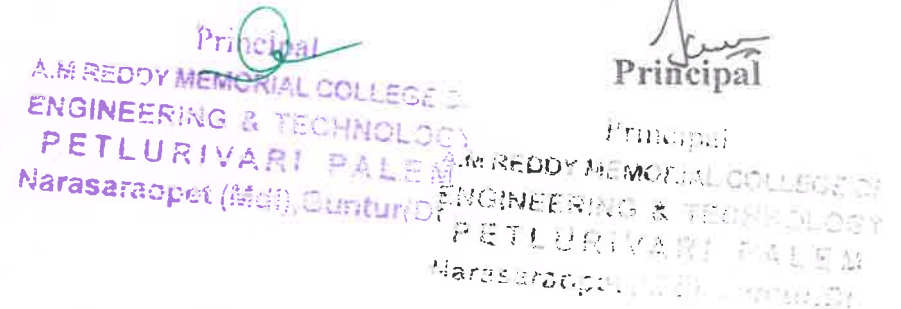 Principal
A.M REDDY MEMORIAL COLLEGE OF
ENGINEERING & TECHNOLOGY
PETLURIVARI PALEM
Narasaraopet (Mdl), Guntur(Dt
Principal
Principal
A.M REDDY MEMORIAL COLLEGE OF
ENGINEERING & TECHNOLOGY
PETLURIVARI PALEM
Narasaraopet